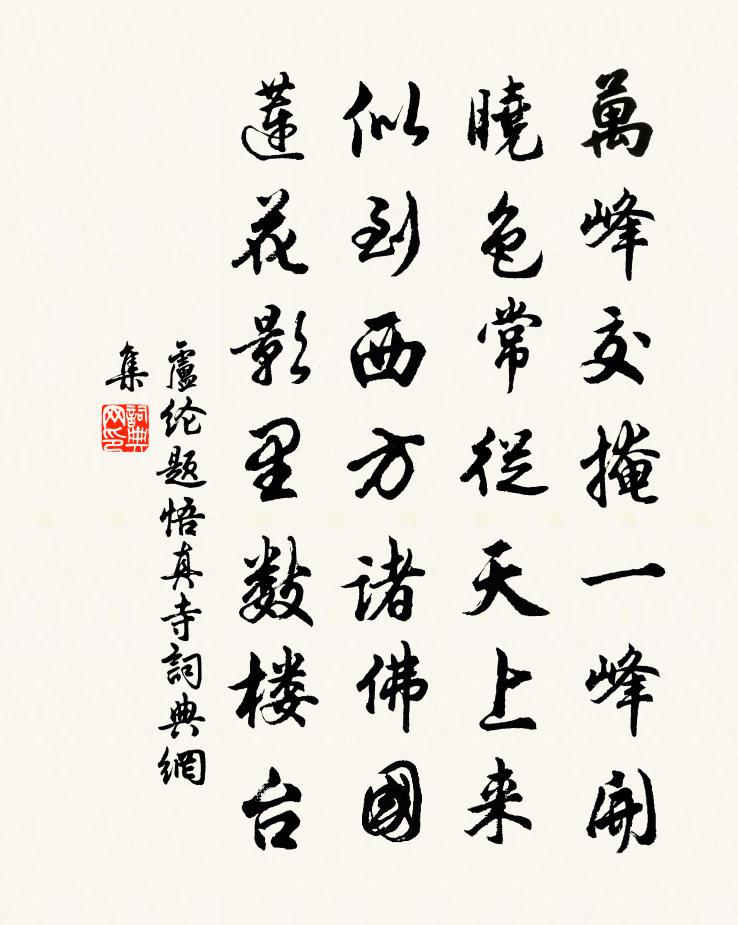 萬峰交掩一峰開
曉色常從天上来
似到西方諸佛國
蓮花影里數楼台
盧纶题悟真寺詞典網
集
詞典网印